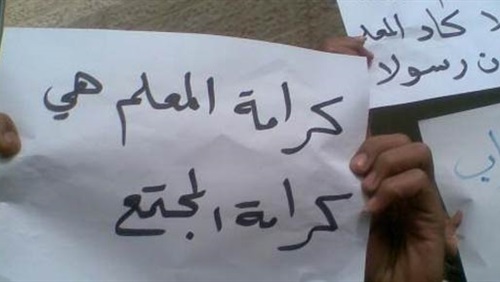 كرامة المعلم هي
كرامة المجتمع
كاد المعلم
ن رسولا
اب